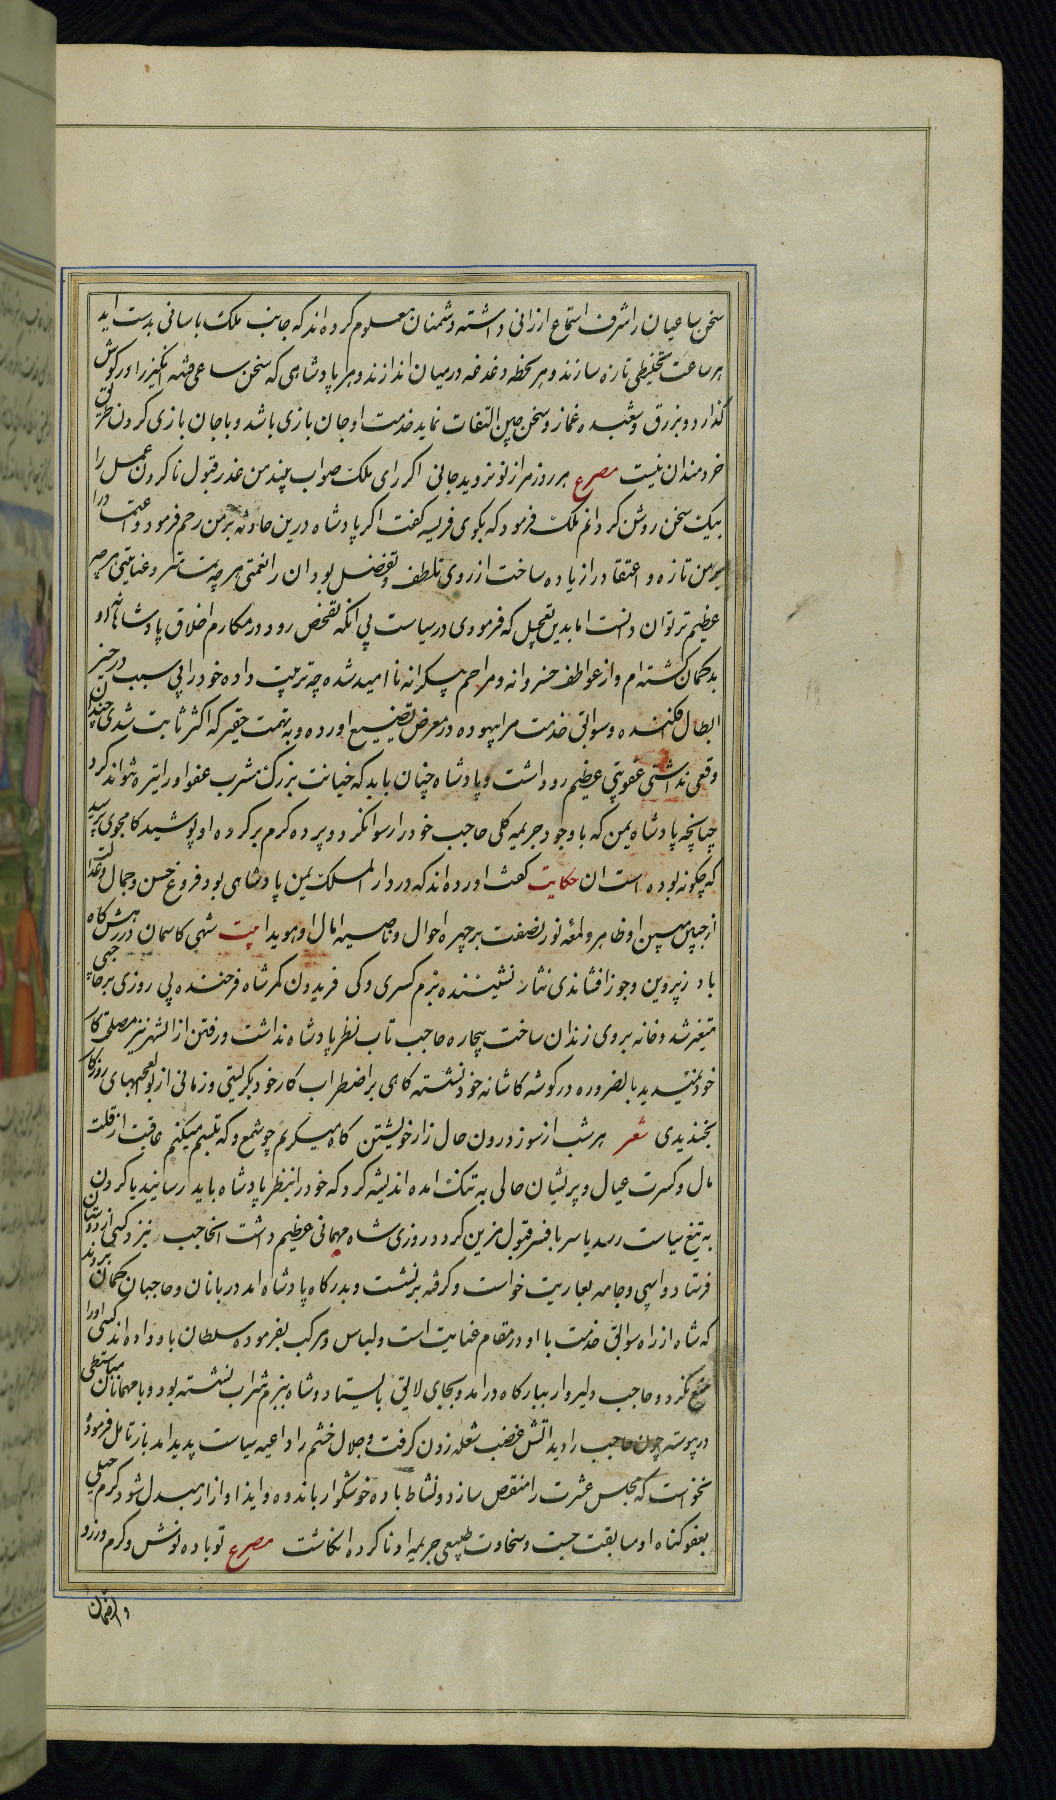 سخن ساعیان را شرف استماع ارزانی داشته و دشمنان معلوم کرده اند که جانب ملک باسانی بدست اید
هر ساعت تخلیطی تازه سازند و هر لحظه دغدغه در میان اندازند و هر پادشاهی که سخن ساعی فتنه انکیز را در کوش
کذارد و بزرق و شعبده غماز و سخن چین التفات نماید خدمت او جان بازی باشد و با جان بازی کردن طریق
خردمندان نیست مصرع هر روز مرا ز نو نروید جانی اکر رای ملک صواب بیند من عذر قبول ناکردن عمل را
بیک سخن روشن کردانم ملک فرمود که بکوی فریسه کفت اکر پادشاه درین حادثه بر من رحم فرمود و اعتماد را
بر من تازه و اعتقاد را زیاده ساخت از روی تلطف و تفضل بود ان را نعمتی هر چه تمامتر و عنایتی هر چه
عظیم تر توان دانست اما بدین تعجیل که فرمودی در سیاست بی انکه تفحص رود در مکارم اخلاق پادشاهانه او
بدکمان کشته ام و از عواطف خسروانه و مراحم بیکرانه نا امید شده چه تربیت داده خود را بی سبب در حیز
ابطال فکنده و سوابق خدمت مرا بیهوده در معرض تضییع اورده و به تهمت حقیر که اکثر ثابت شدی چندان
وقعی نداشتی عقوبتی عظیم رود داشت و پادشاه چنان باید که خیانت بزرک مشرب عفو او را تیره نتواند کرد
چنانچه پادشاه یمن که با وجود جریمه کلی حاجب خود را رسوا نکرد و پرده کرم بر کرده او پوشید کامجوی پرسید
که چکونه بوده است ان حکایت کفت اورده اند که در دار الملک یمن پادشاهی بود فروغ حسن و جمال و عدالت
از جبین مبین او ظاهر و لمعه نور نصفت بر چهره احوال و ناصیه امال او هویدا بیت شهی کاسمان در رهش کاه
باد ز پروین و جوز افشاندی نثار نشیننده بزم کسری و کی فریدون کمر شاه فرخنده پی روزی بر حاجبی
متغیر شد و خانه بر وی زندان ساخت بیچاره حاجب تاب نظر پادشاه نداشت و رفتن از الشهر نیز مصلحت کار
خود نمیدید بالضروره در کوشه کاشانه خود نشسته کاهی بر اضطراب کار خود بکریستی و زمانی از بوالعجبیهای روزکار
بخندیدی شعر هر شب از سوز درون حال زار خویشتن کاه میکریم چو شمع و که تبسم میکنم عاقبت از قلت
مال و کسرت عیال و پریشان حالی به تنک امده اندیشه کرد که خود را بنظر پادشاه باید رسانید یا کردن
به تیغ سیاست رسد یا سر بافسر قبول مزین کردد روزی شاه مهمانی عظیم داشت انحاجب نزد کسی از دوستان
فرستاد و اسپی و جامه بعاریت خواست و کرفته بر نشست و بدرکاه پادشاه امد دربانان و حاجبان کمان بردند
که شاه از راه سوابق خدمت با او در مقام عنایت است و لباس و مرکب بفرموده سلطان باو داده اند کسی او را
منع نکرد و حاجب دلیروار ببارکاه درامد و بجای لایق بایستاد و شاه ببزم شراب نشسته بود و با مهمانان مباسطی
در پیوسته چون حاجب را دید اتش غضب شعله زدن کرفت و جلال خشم را داعیه سیاست پدید امد باز تامل فرموده
نخواست که مجلس عشرت را منقص سازد و نشاط باده خوشکوار باندوه و ایذا و ازار مبدل شود کرم جبلی
بعفو کناه او مسابقت جست و سخاوت طبیعی جریمه او ناکرده انکاشت مصرع تو باده نوش و کرم ورز و
و الضمان